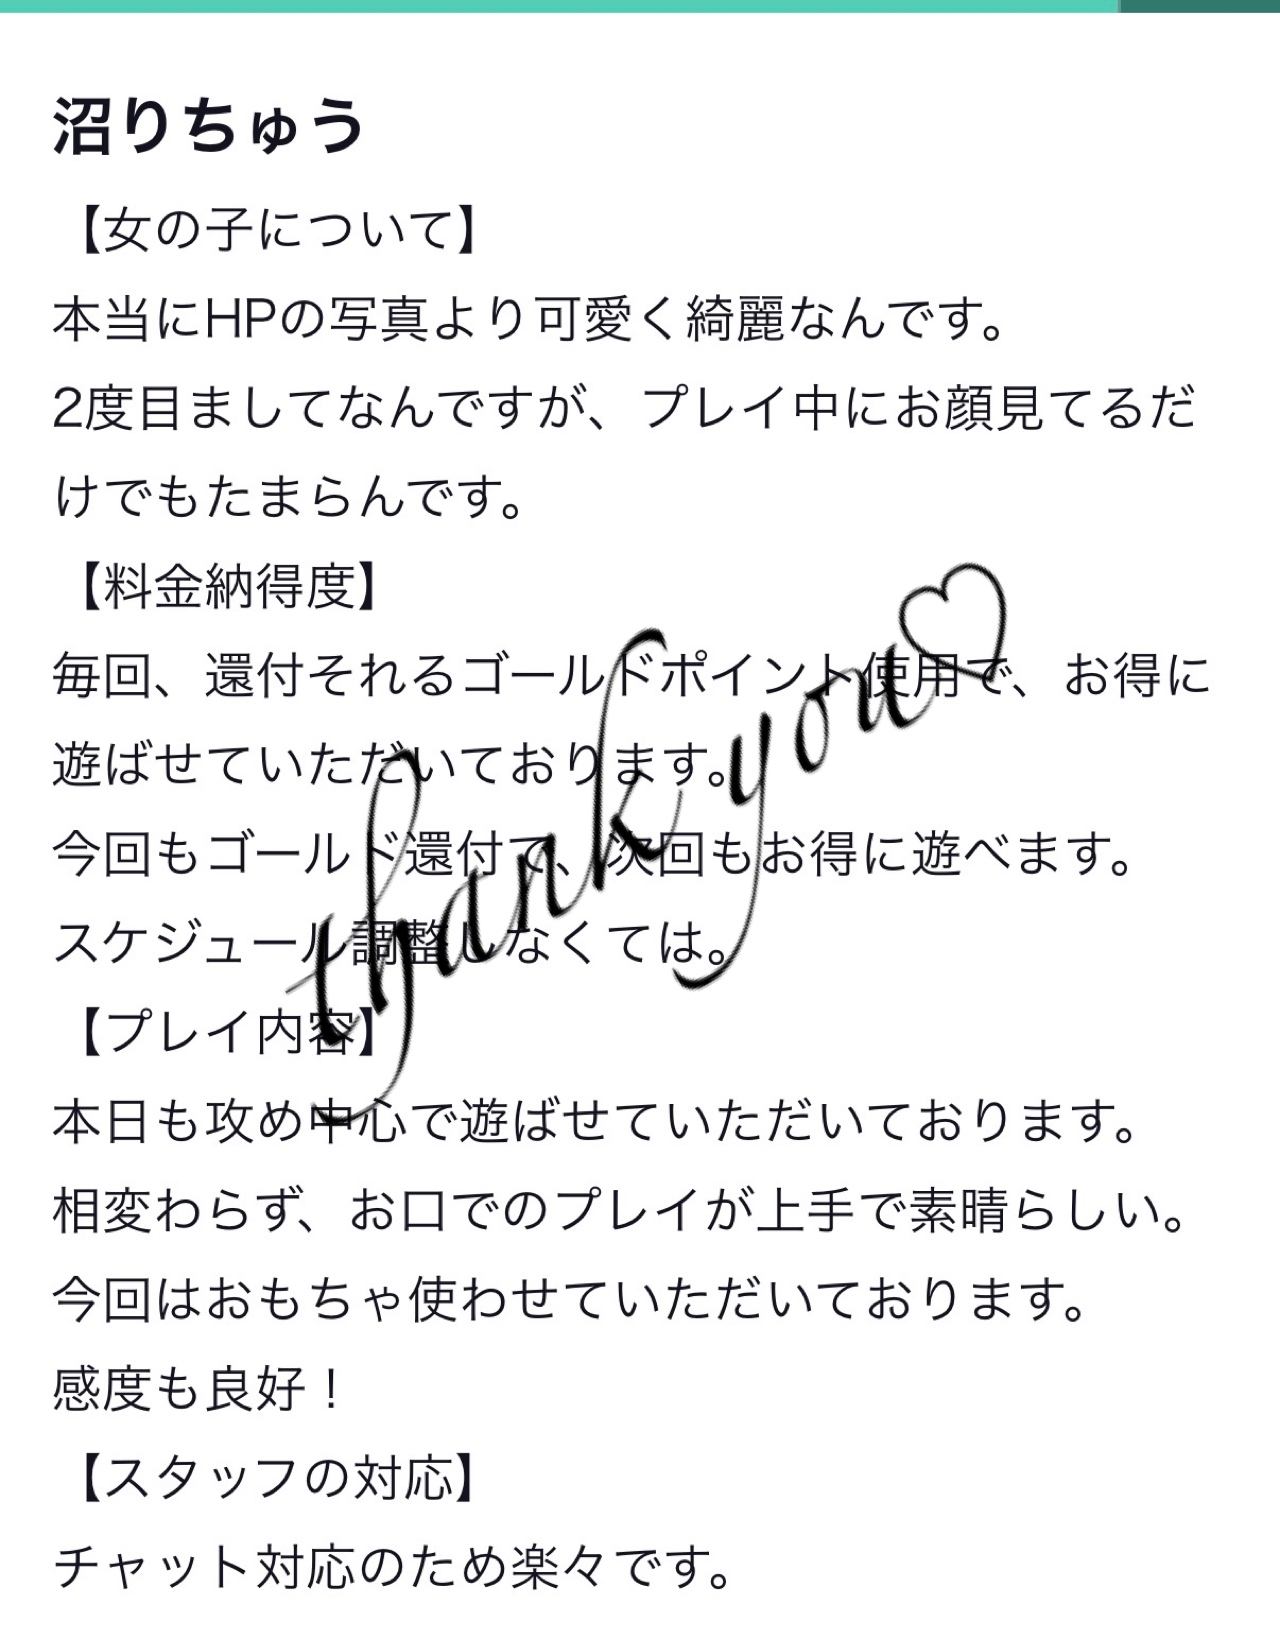 沼りちゅう
【女の子について】
本当にHPの写真より可愛く綺麗なんです。
2度目ましてなんですが、プレイ中にお顔見てるだ
けでもたまらんです。
【料金納得度】
毎回、還付それるゴールドポイント使用で、お得に
遊ばせていただいております。
今回もゴールド還付で、次回もお得に遊べます。
スケジュール調整しなくては。
【プレイ内容】
本日も攻め中心で遊ばせていただいております。
相変わらず、お口でのプレイが上手で素晴らしい。
今回はおもちゃ使わせていただいております。
感度も良好！
【スタッフの対応】
チャット対応のため楽々です。
thank you♡